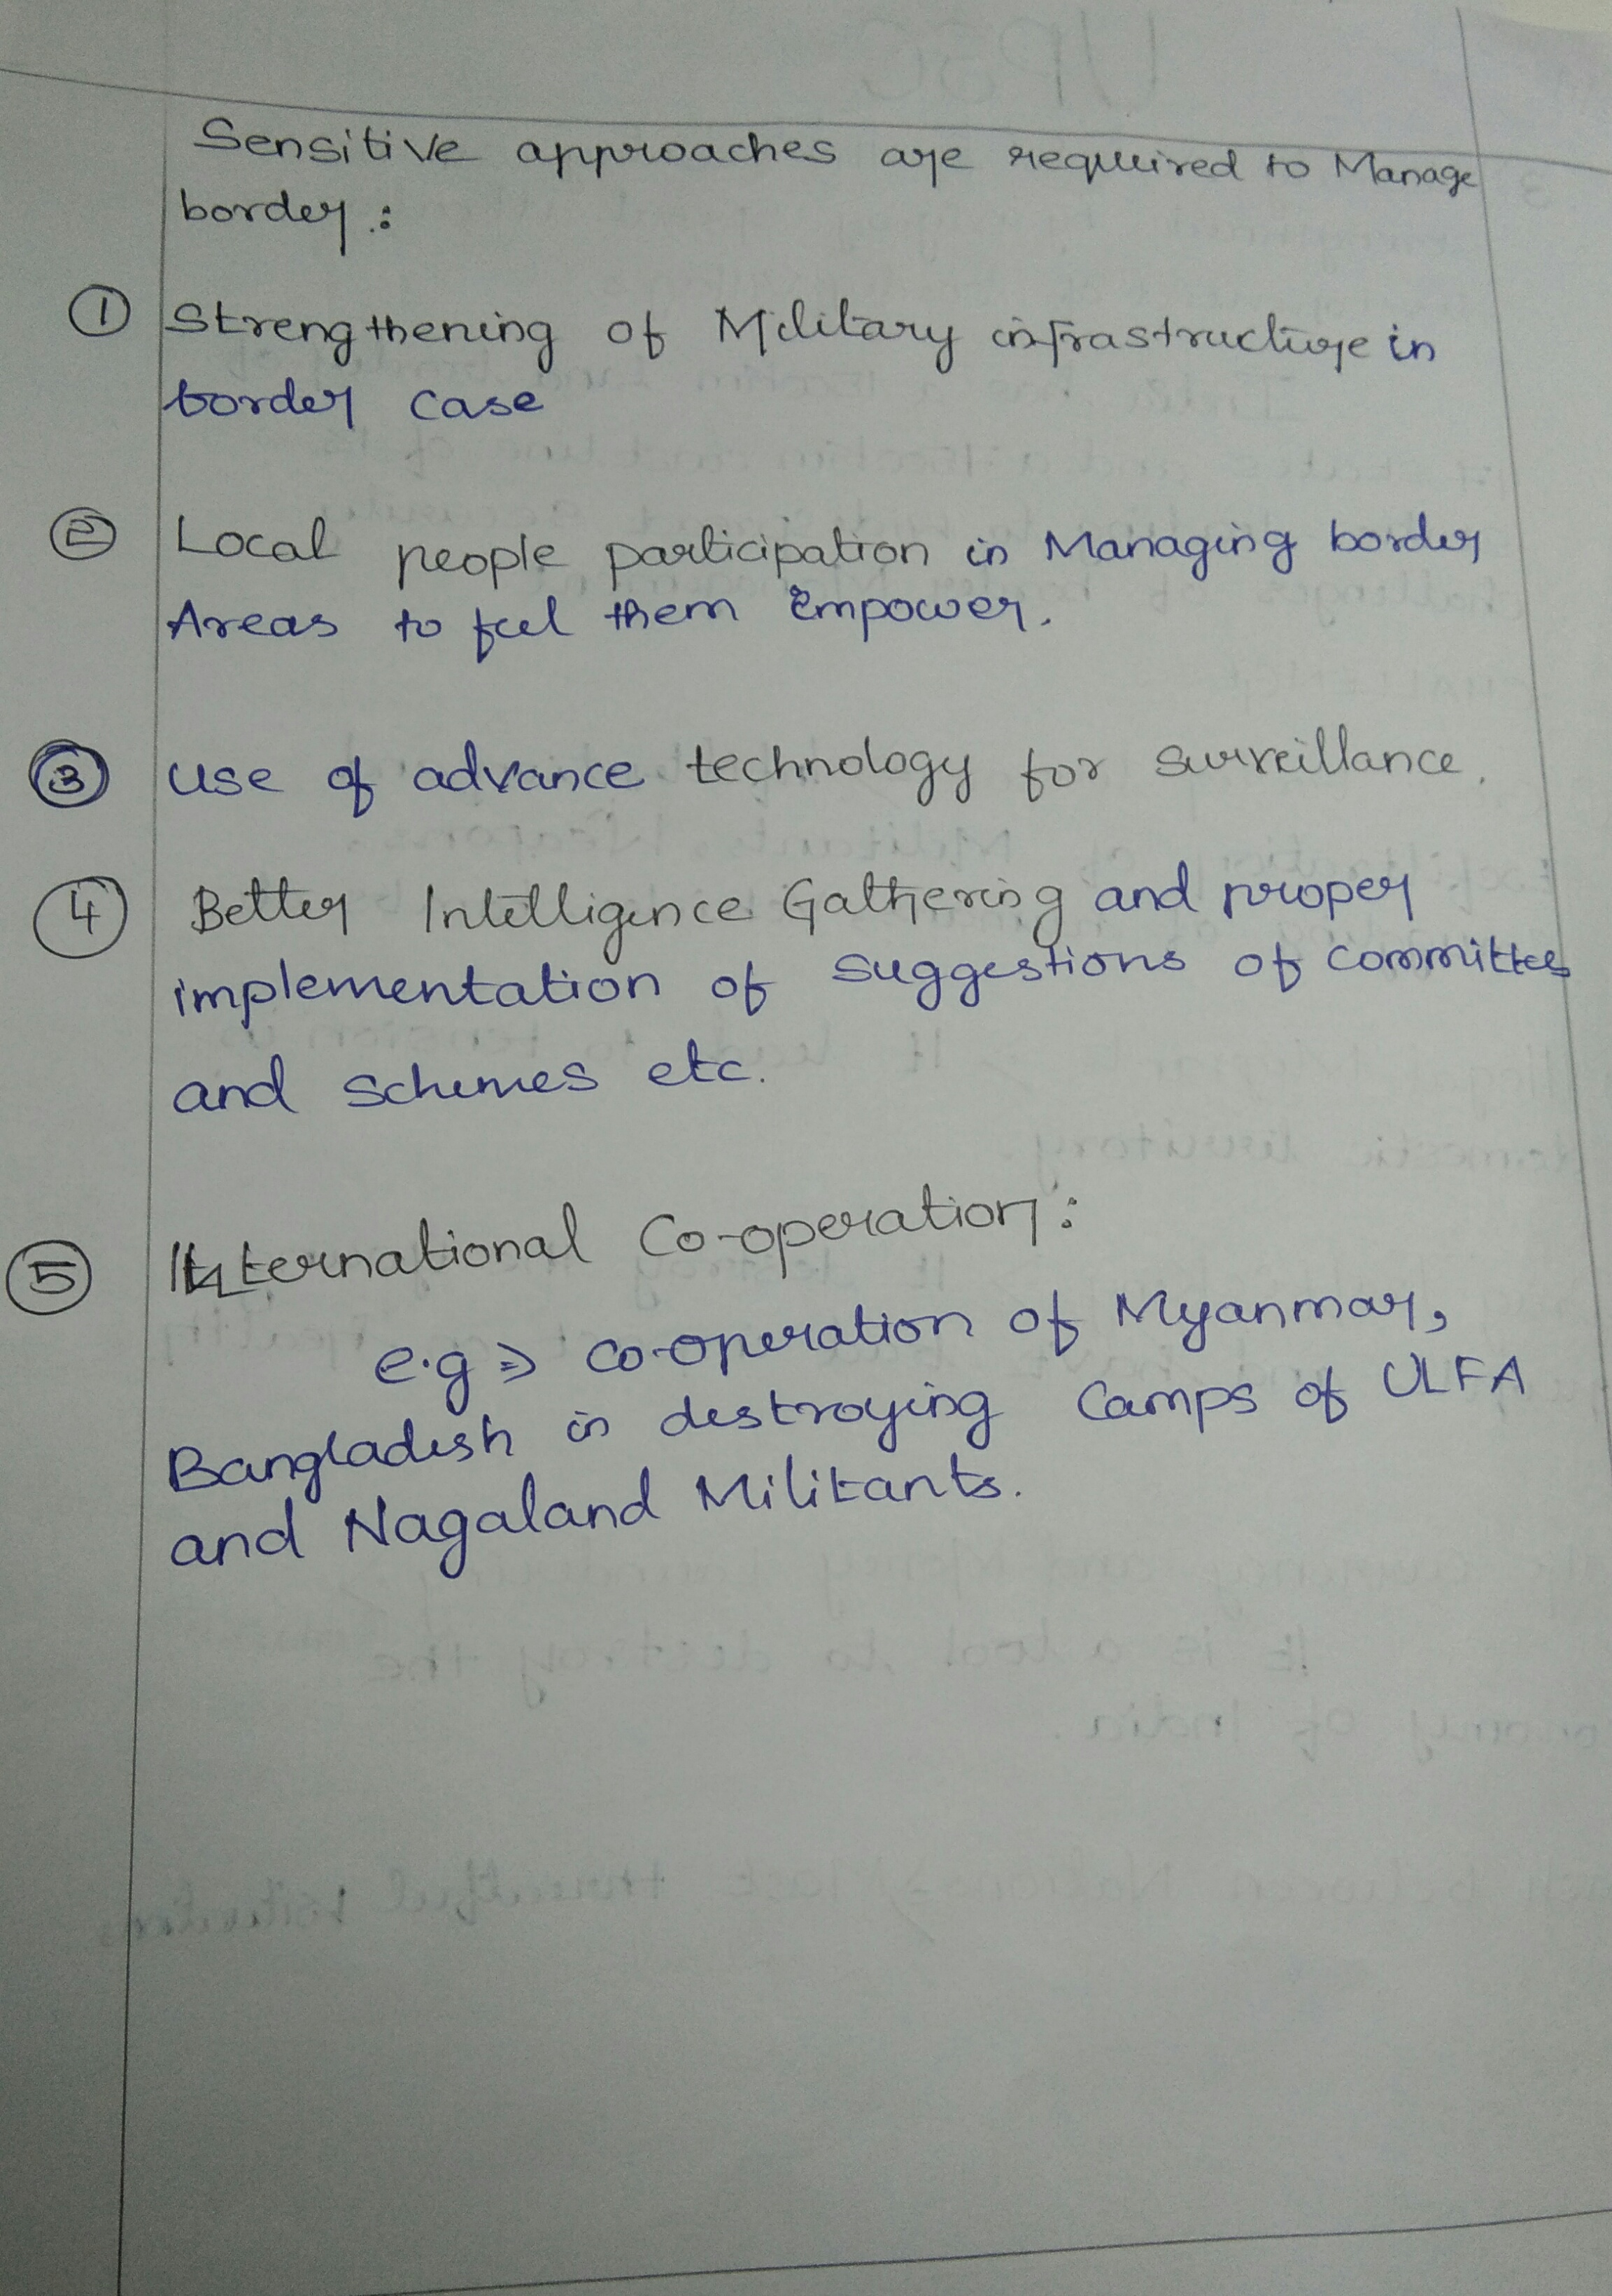 Sensitive approaches are required to Manage
border :
① Strengthening of Military infrastructure in
border case
② Local people participation in Managing border
Areas to feel them Empower.
③ use of advance technology for surveillance.
④ Better Intelligence Gathering and proper
implementation of suggestions of committees
and schemes etc.
⑤ International Co-operation :
e.g ⇒ co-operation of Myanmar,
Bangladesh in destroying Camps of ULFA
and Nagaland Militants.